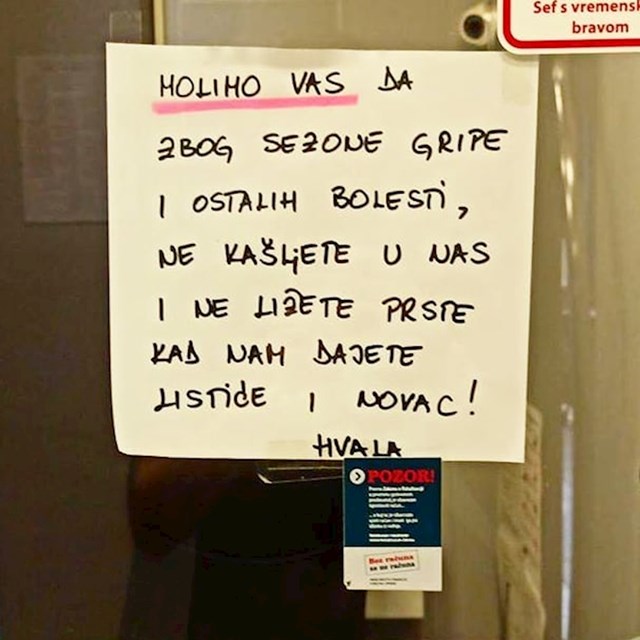 Sef s vremensk
bravom
MOLIMO VAS DA
ZBOG SEZONE GRIPE
I OSTALIH BOLESTI,
NE KAŠLJETE U NAS
I NE LIŽETE PRSTE
KAD NAM DAJETE
LISTIĆE I NOVAC!
HVALA
POZOR!
Bez računa
se ne računa